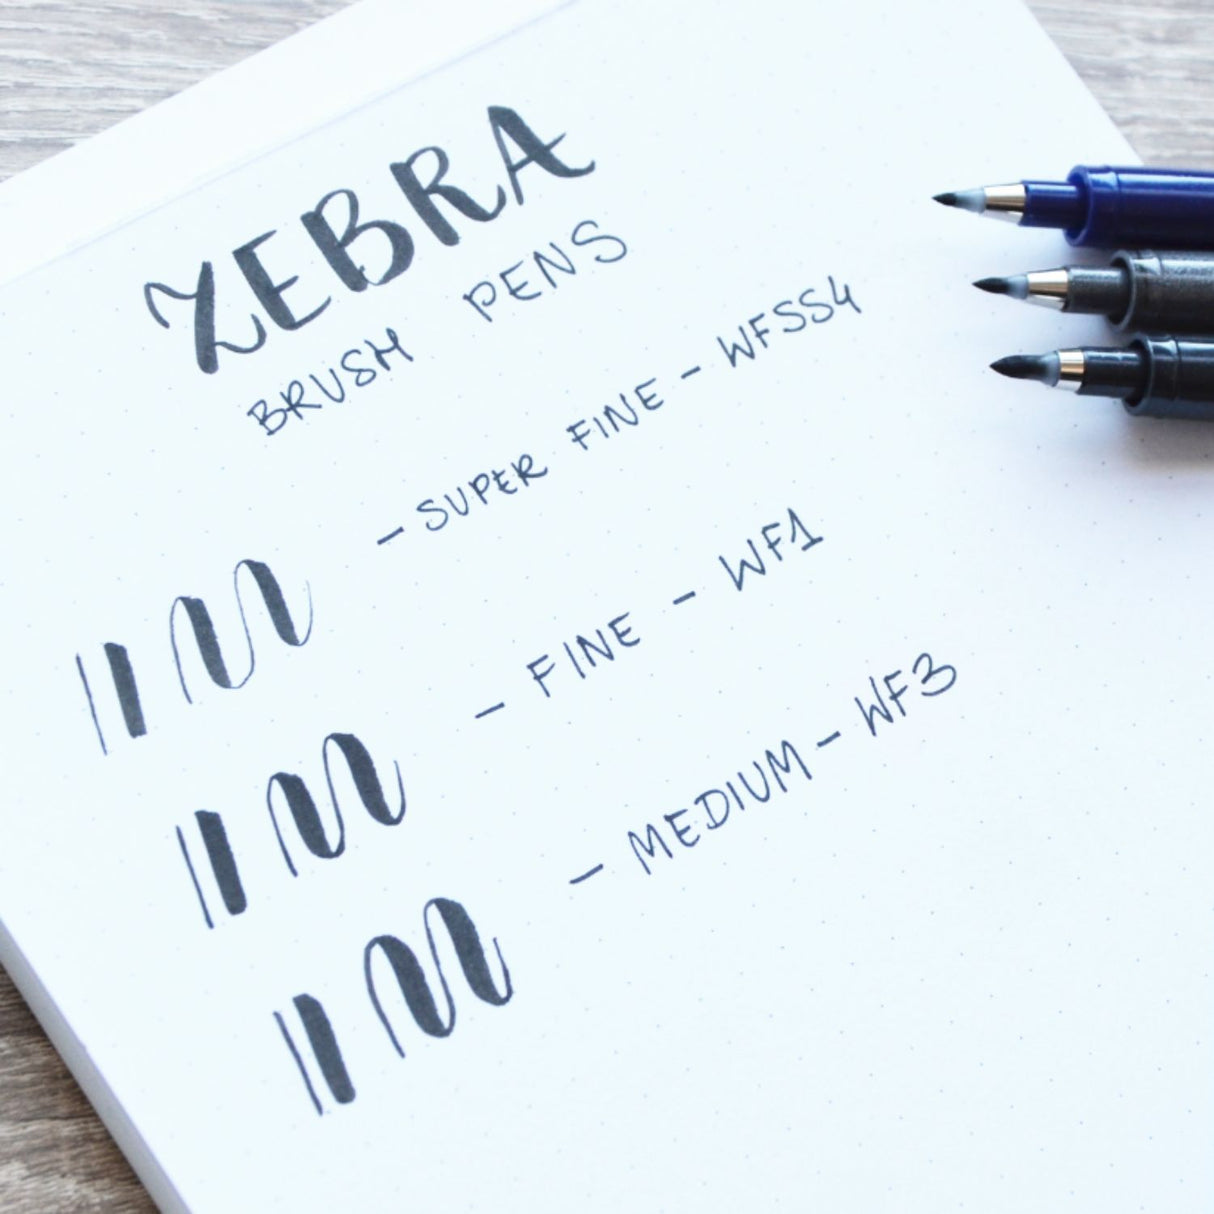 ZEBRA
BRUSH PENS
- SUPER FINE - WFSS4
- FINE - WF1
- MEDIUM - WF3